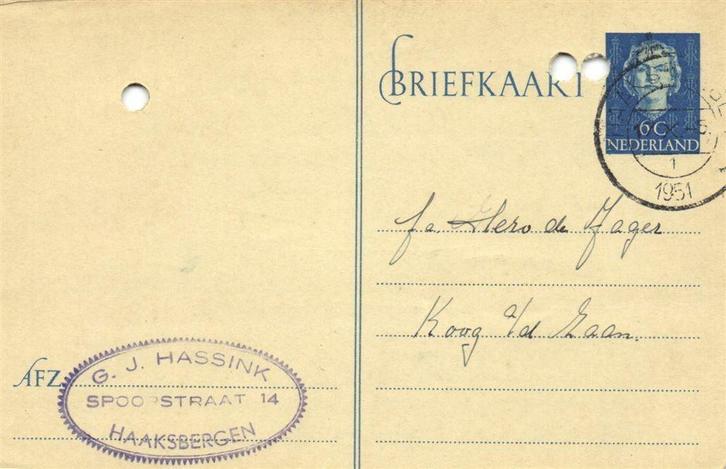 BRIEFKAART
6 C
NEDERLAND
1
1951
fa. Hero de Jager
Koog a/d Zaan.
AFZ.
G. J. HASSINK
SPOORSTRAAT 14
HAAKSBERGEN